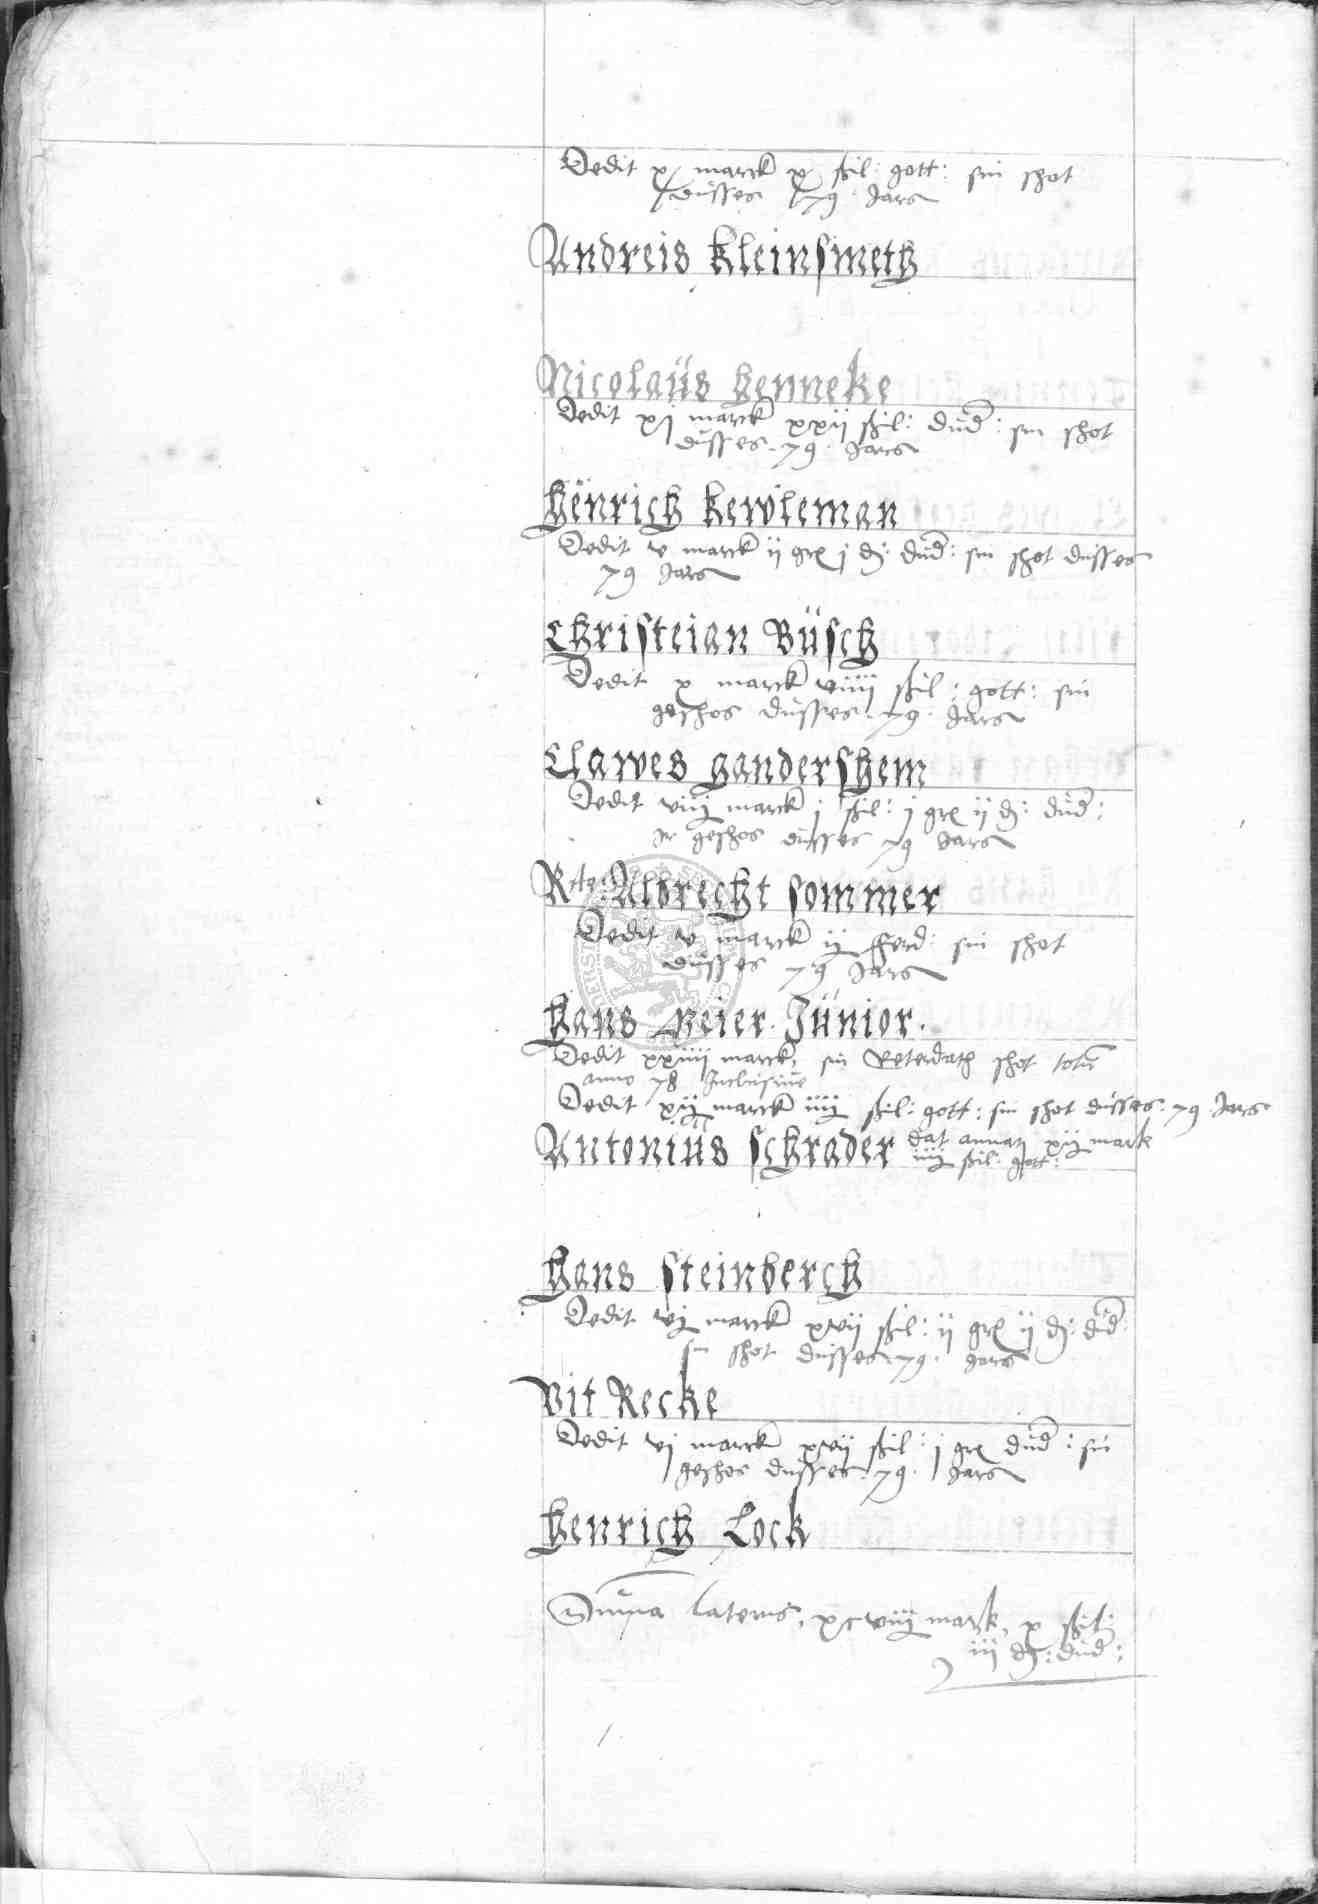 Dedit x marck x ßil: gott: sin shot
dusses 79 Jars
Andreis Kleinsmeth
Nicolaüs Henneke
Dedit xj marck xxij ßil: düd: sin shot
dusses 79 Jars
Henrich Kewleman
Dedit v marck ij gr j d: düd: sin shot dusses
79 Jars
Christeian Büsch
Dedit x marck viiij ßil: gott: sin
geshos dusses 79 Jars
Clawes Gandershem
Dedit viij marck j ßil: j gr ij d: düd:
Jr geshos dusses 79 Jars
Albrecht Sommer
Dedit v marck ij fferd: sin shot
dusses 79 Jars
Hans Meier Jünior
Dedit xxiiij marck, sin shot
anno 78 Inclusiue
Dedit xij marck iiij ßil: gott: sin shot dusses 79 Jars
Antoniüs Schrader dat annuati xij mark
iiij ßil: gott:
Hans Steinberch
Dedit vj marck xvij ßil: ij gr ij d: düd:
sin shot dusses 79 Jars
Vit Recke
Dedit vj marck xvij ßil: j gr düd: sin
geshos dusses 79 Jars
Henrich Lock
Suma lateris, xcviij mark, x ßil:
iij d: düd: